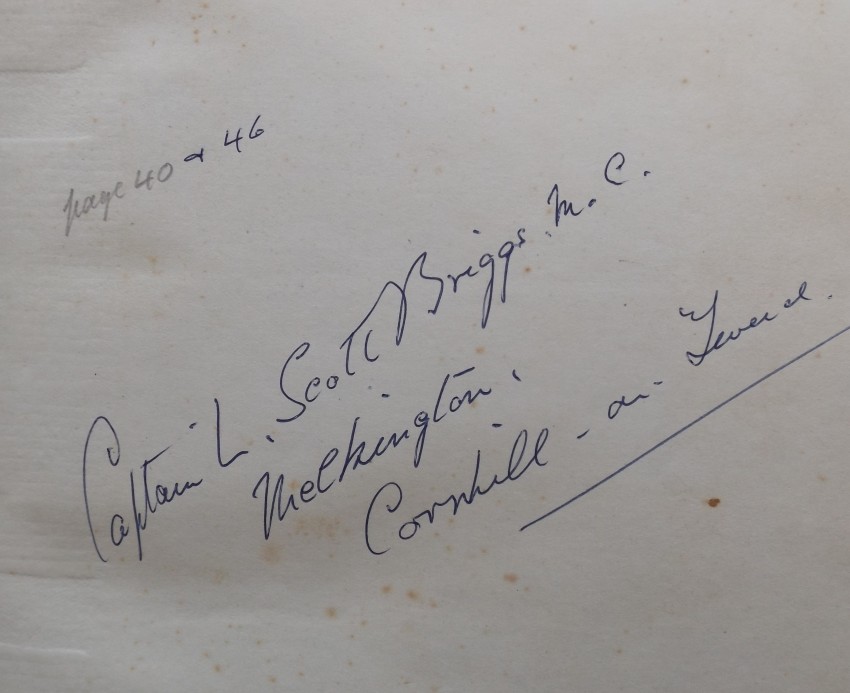 page 40 & 46
Captain L. Scott Briggs. M.C.
Melkington.
Cornhill-on-Tweed.